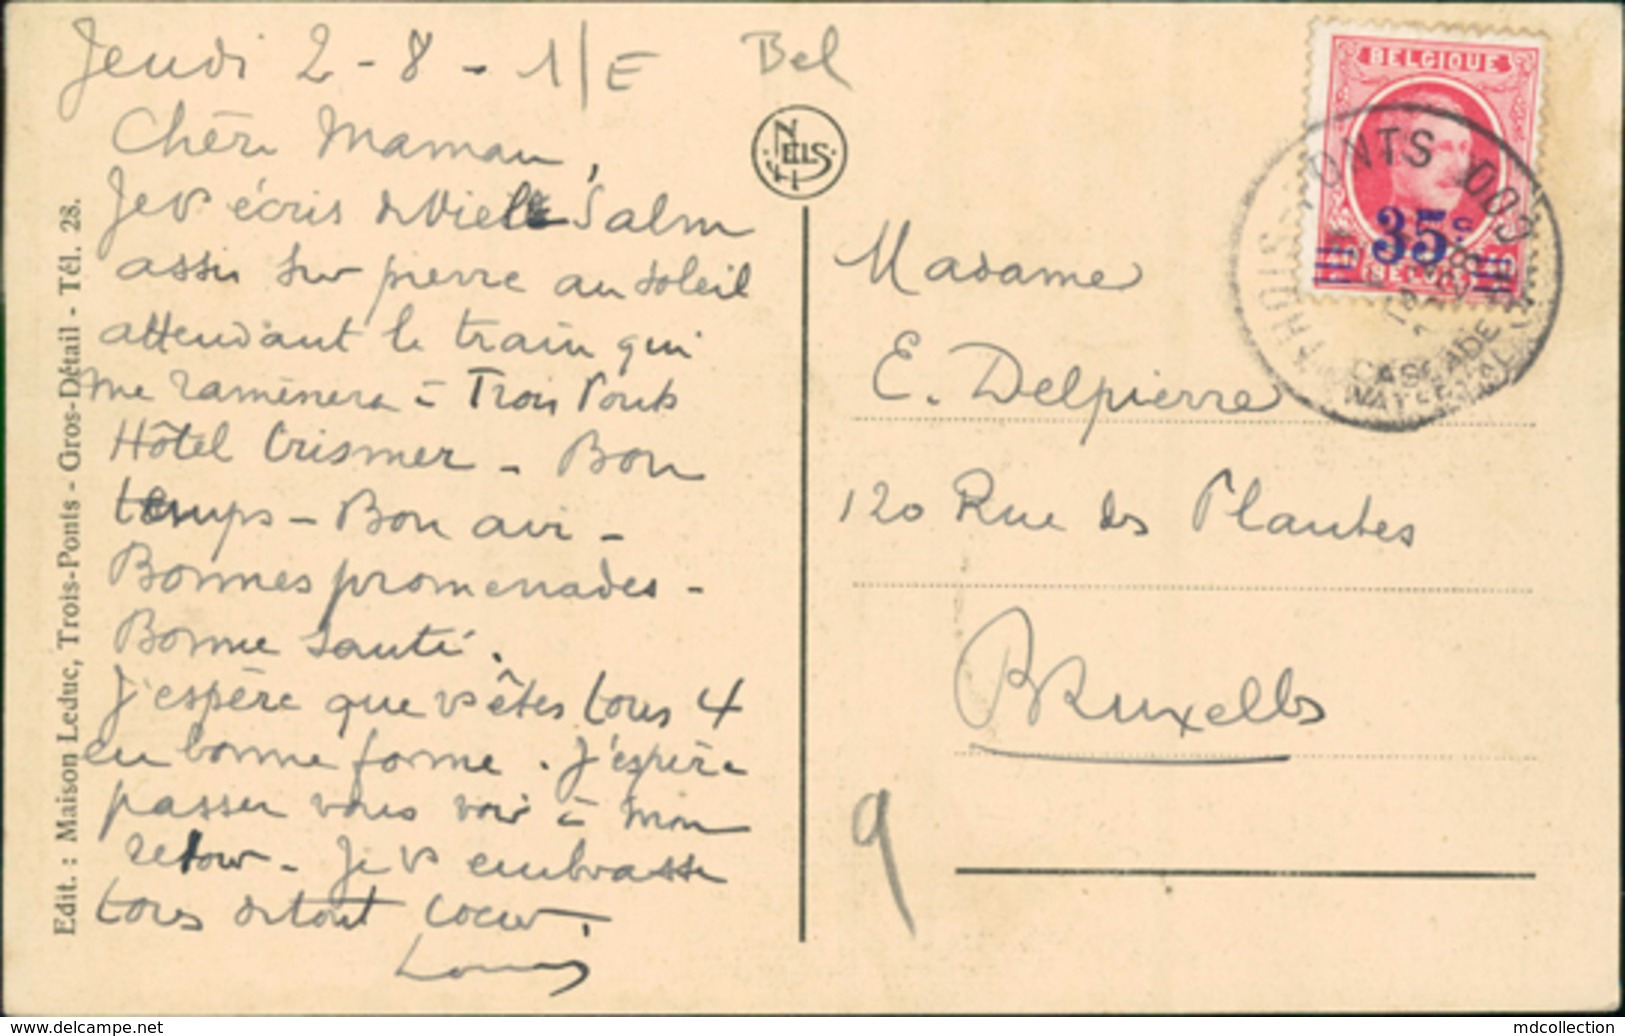 Jeudi 2-8-
1/E
Bel
Chère Maman,
Je v écris de Vielle Salm
assis sur pierre au soleil
attendant le train qui
me ramènera à Trois Ponts
Hôtel Crismer - Bon
temps - Bon air -
Bonnes promenades -
Bonne santé.
J'espère que v êtes tous 4
en bonne forme. J'espère
passer vous voir à mon
retour. Je v embrasse
tous de tout coeur.
Edit. : Maison Leduc, Trois-Ponts - Gros-Détail - Tél. 28.
NELS
BELGIQUE
35c
BELGIË
TROIS-PONTS
CASCADE
Madame
E. Delpierre
120 Rue des Plantes
Bruxelles
9
www.delcampe.net
mdcollection